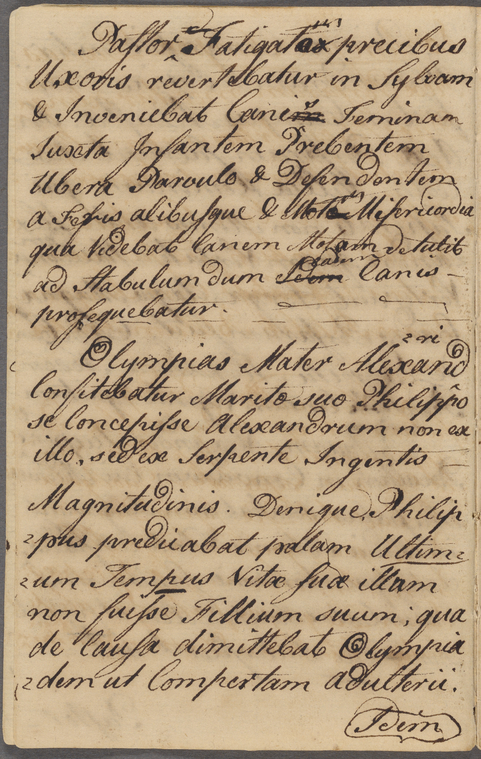 Pastor Fatigatus precibus
Uxoris revertebatur in Sylvam
& Inveniebat Canem Feminam
Juxta Infantem Prebentem
Ubera Parvulo & Defendentem
a Feris alibusque & Motus Misericordia
qua Videbat Canem Motam detulit
ad Stabulum dum eadem Canis
prosequebatur.
Olympias Mater Alexand=ri
Confitebatur Marito suo Philippo
se Concepisse Alexandrum non ex
illo, sed ex Serpente Ingentis
Magnitudinis. Denique, Philip=
=pus predicabat palam Ultim=
=um Tempus Vitæ suæ illam
non fuisse Fillium suum; qua
de Causa dimittebat Olympia
=dem ut Compertam adulterii.
Idem